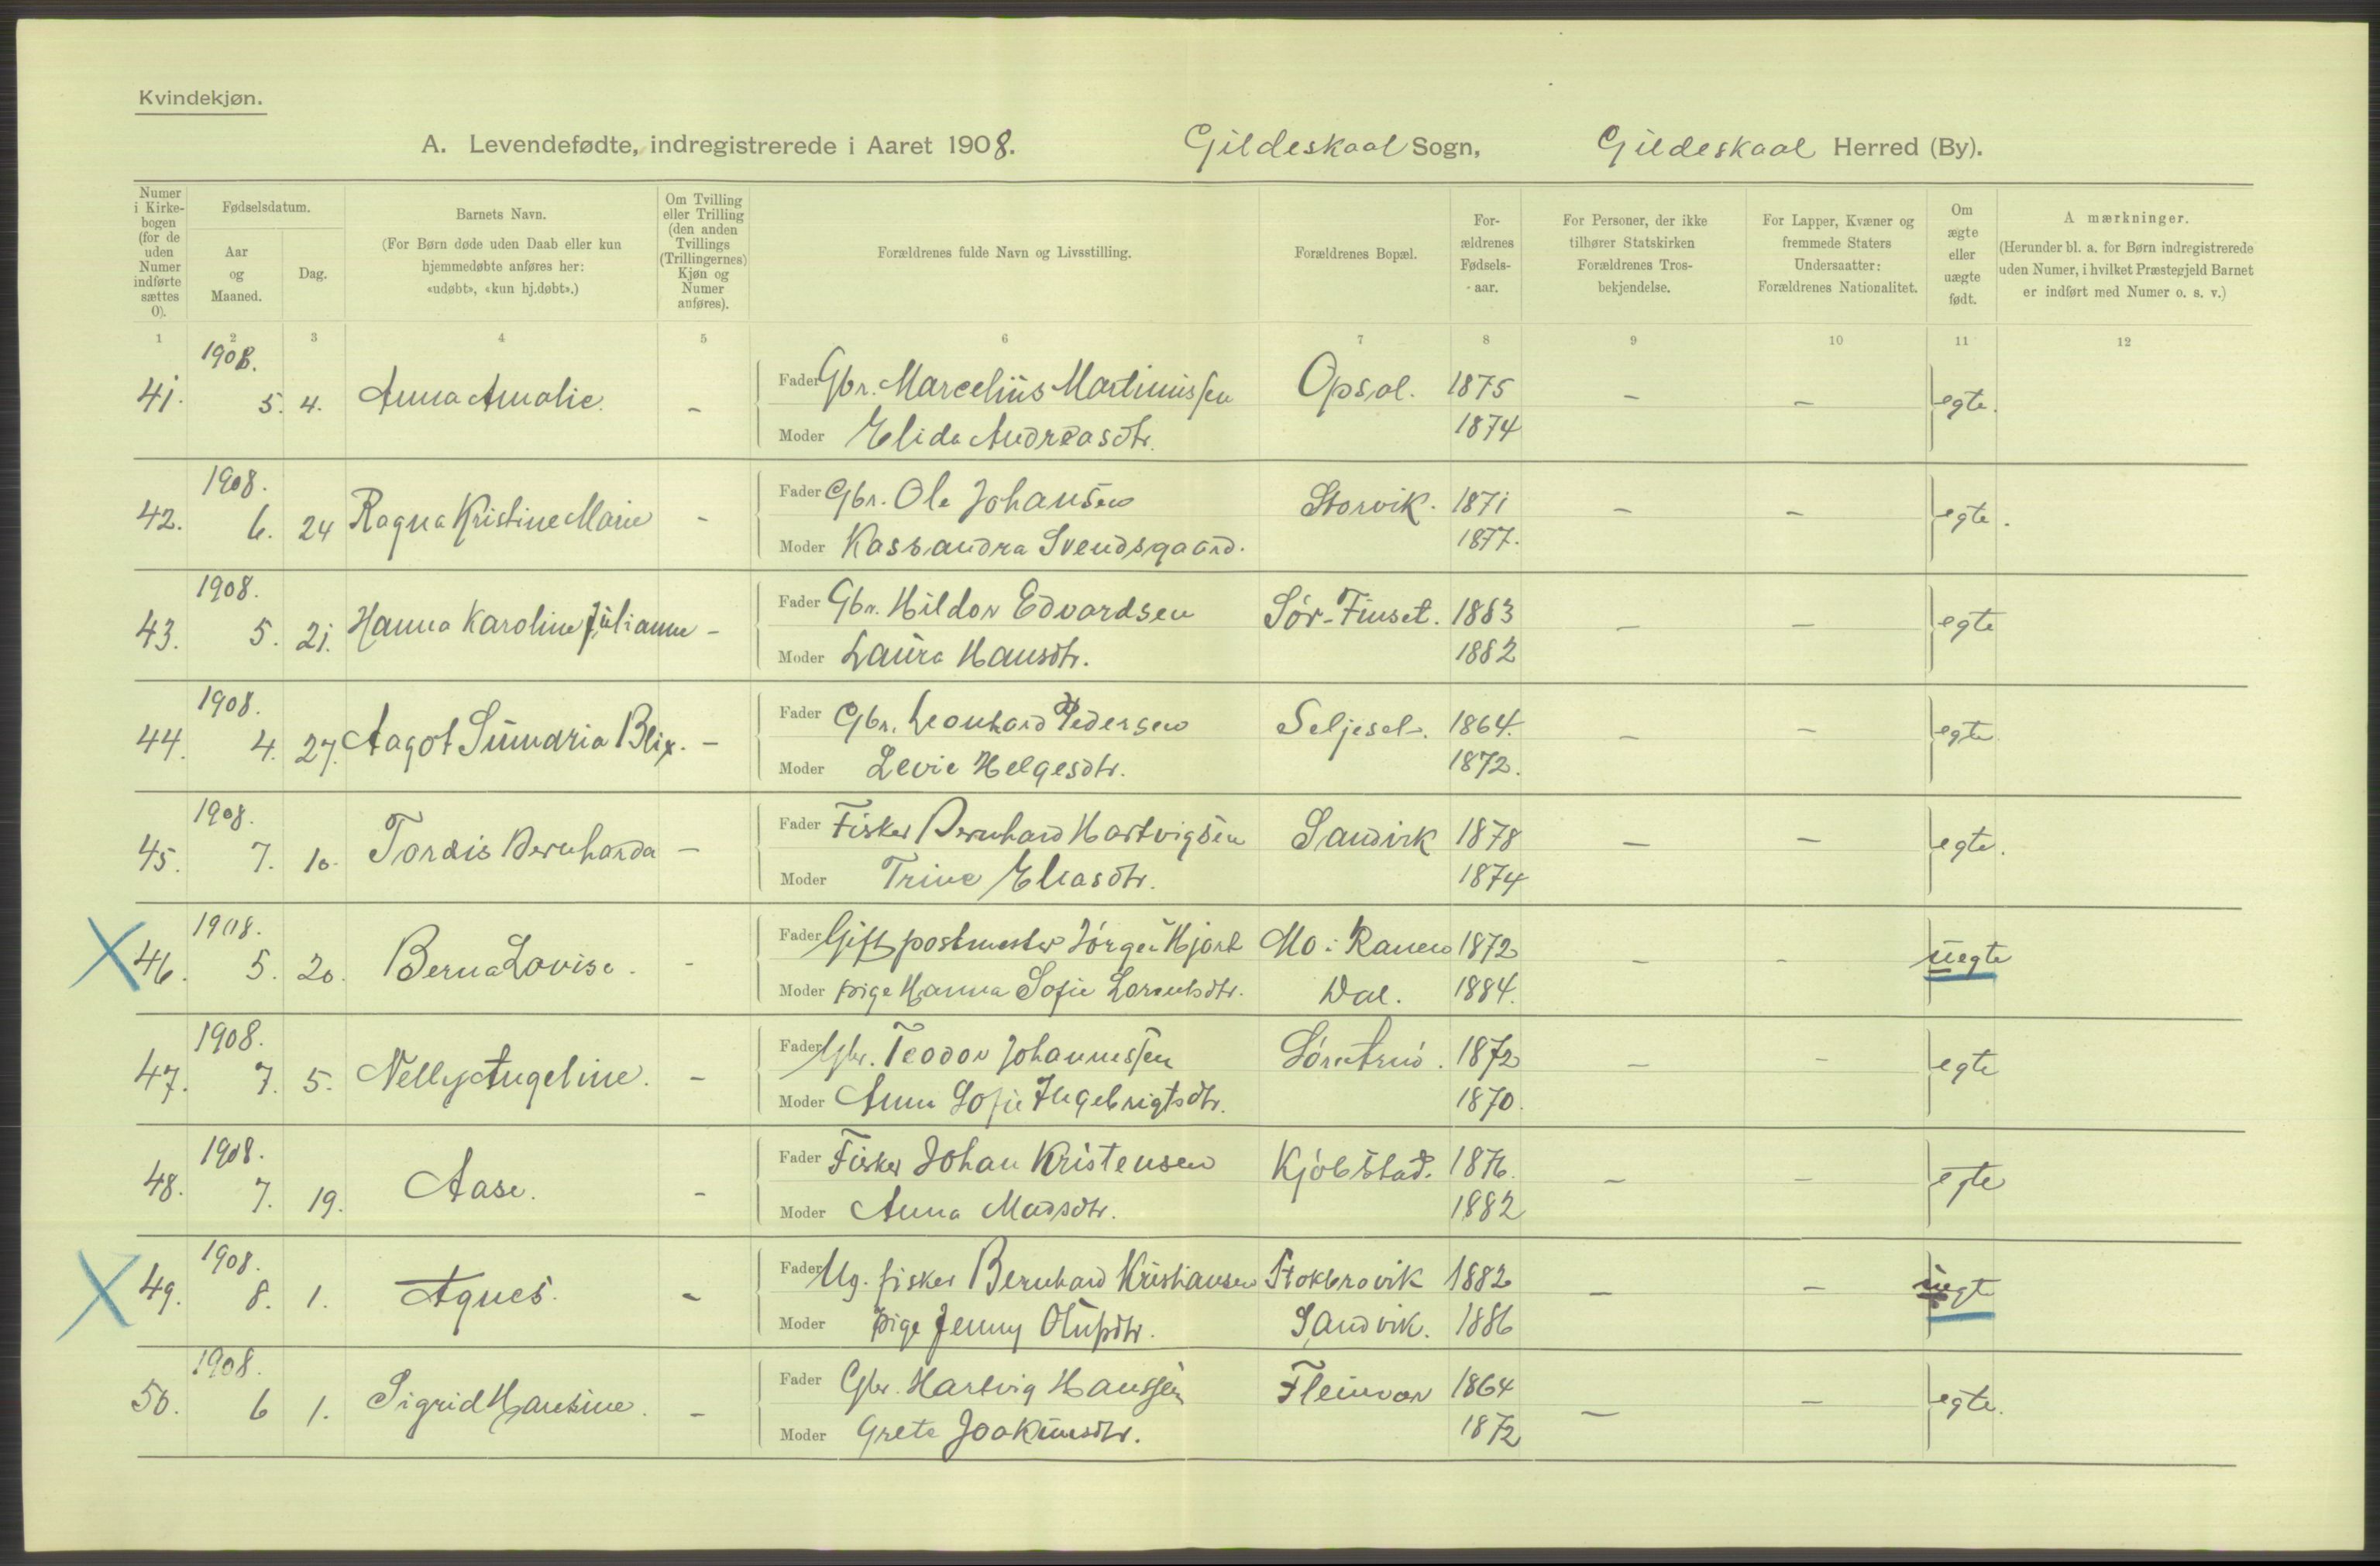 Kvindekjøn.
A. Levendefødte, indregistrerede i Aaret 1908. Gildeskaal Sogn, Gildeskaal Herred (By).
Numer i Kirke-bogen (for de uden Numer indførte sættes 0).
Fødselsdatum.
Aar og Maaned.
Dag.
Barnets Navn.
(For Børn døde uden Daab eller kun hjemmedøbte anføres her: «udøbt», «kun hj.døbt».)
Om Tvilling eller Trilling (den anden Tvillings (Trillingernes) Kjøn og Numer anføres).
Forældrenes fulde Navn og Livsstilling.
Forældrenes Bopæl.
For-ældrenes Fødsels-aar.
For Personer, der ikke tilhører Statskirken Forældrenes Tros-bekjendelse.
For Lapper, Kvæner og fremmede Staters Undersaatter: Forældrenes Nationalitet.
Om ægte eller uægte født.
A mærkninger.
(Herunder bl. a. for Børn indregistrerede uden Numer, i hvilket Præstegjeld Barnet er indført med Numer o. s. v.)
1 2 3 4 5 6 7 8 9 10 11 12
1908.
41. 5. 4. Anna Amalie. - Fader Gbr. Marcelius Martinussen Opsal. 1875 - - egte.
Moder Elida Andreasdtr. 1874
1908.
42. 6. 24 Ragna Kristine Marie - Fader Gbr. Ole Johansen Storvik. 1871 - - egte.
Moder Kassandra Svendsgaard. 1877.
1908.
43. 5. 21. Hanna Karoline Julianne - Fader Gbr. Hildor Edvardsen Sør-Finset. 1883 - - egte
Moder Laura Hansdtr. 1882
1908.
44. 4. 27. Aagot Sumaria Blix. - Fader Gbr. Leonhard Pedersen Seljesel. 1864. - - egte
Moder Levie Helgesdtr. 1872.
1908.
45. 7. 10. Tordis Bernharda - Fader Fisker Bernhard Hartvigsen Sandvik 1878 - - egte.
Moder Trine Eliasdtr. 1874
1908.
46. 5. 20. Berna Lovise. - Fader Gift postmester Jørgen Hjort Mo i Ranen 1872 - - uegte
Moder pige Hanna Sofie Lorentsdtr. Dal. 1884.
1908.
47. 7. 5. Nelly Angeline. - Fader Gbr. Teodor Johannessen Sørarnø. 1872 - - egte
Moder Anna Sofie Ingebrigtsdtr. 1870.
1908.
48. 7. 19. Aase. - Fader Fisker Johan Kristensen Kjøbstad. 1876. - - egte
Moder Anna Madsdtr. 1882
1908.
49. 8. 1. Agnes. - Fader Ug. fisker Bernhard Kristiansen Stokbrovik 1882 - - uegte
Moder pige Jenny Olufsdtr. Sandvik. 1886
1908.
50. 6 1. Sigrid Hansine. - Fader Gbr. Hartvig Hanssen Fleinvær 1864 - - egte.
Moder Grete Joakimsdtr. 1872